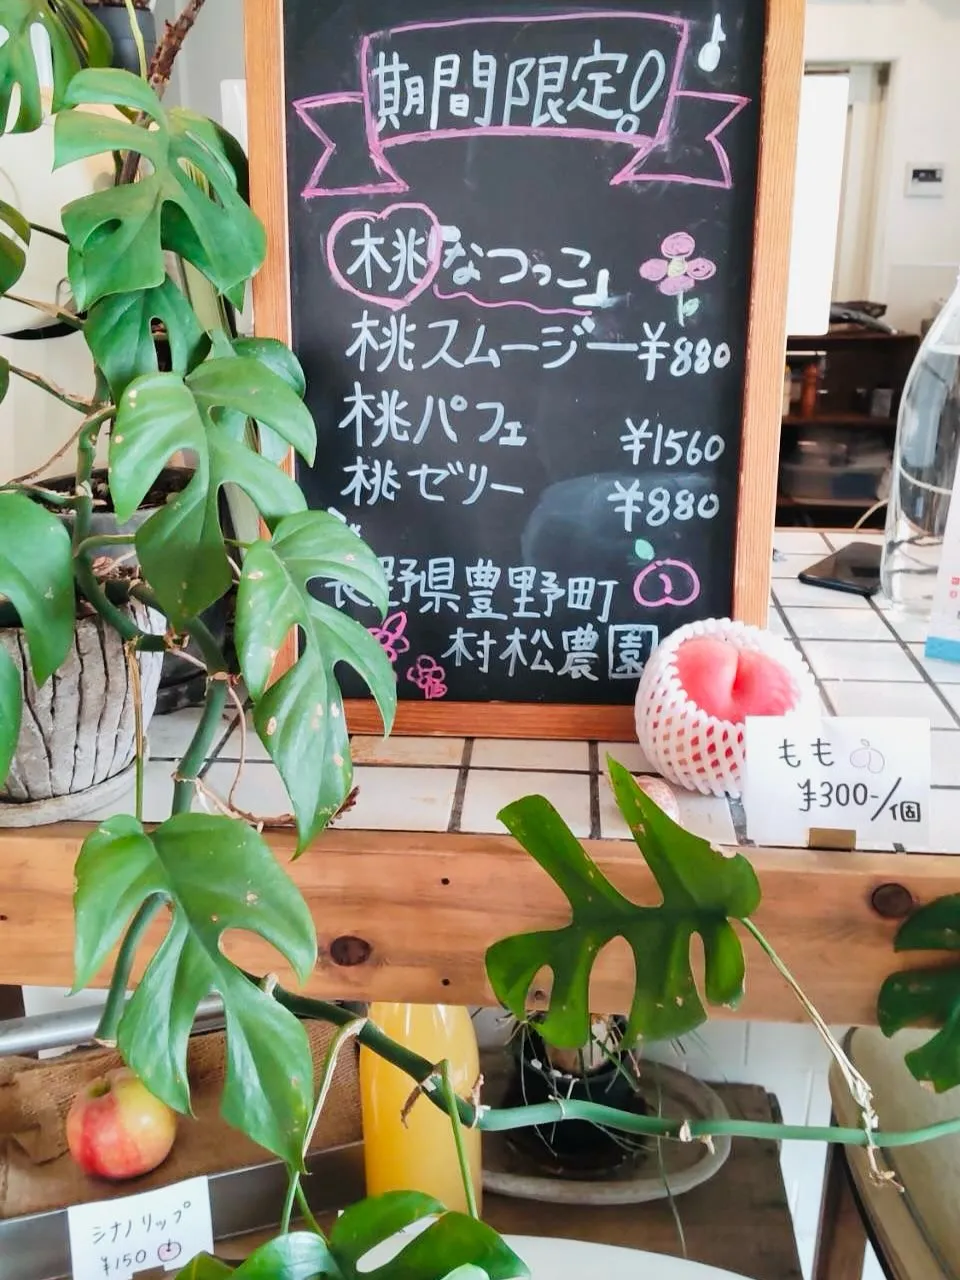 期間限定!
桃「なつっこ」
桃スムージー ¥880
桃パフェ ¥1560
桃ゼリー ¥880
長野県豊野町
村松農園
もも
¥300-/個
シナノリップ
¥150